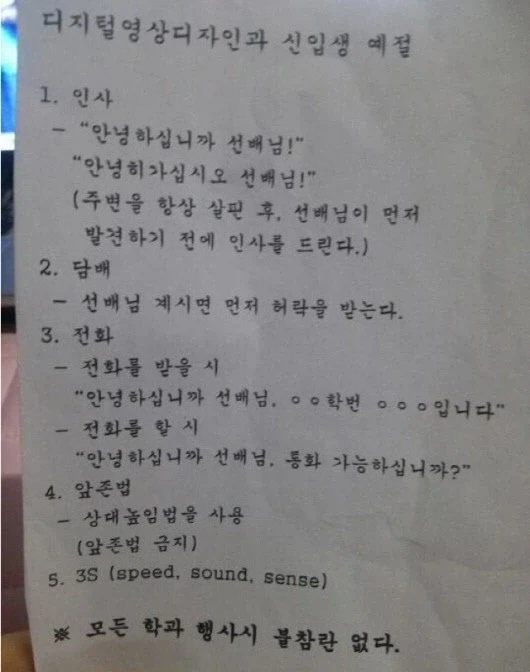 디지털영상디자인과 신입생 예절
1. 인사
- "안녕하십니까 선배님!"
"안녕히가십시오 선배님!"
(주변을 항상 살핀 후, 선배님이 먼저
발견하기 전에 인사를 드린다.)
2. 담배
- 선배님 계시면 먼저 허락을 받는다.
3. 전화
- 전화를 받을 시
"안녕하십니까 선배님, ㅇㅇ학번 ㅇㅇㅇ입니다"
- 전화를 할 시
"안녕하십니까 선배님, 통화 가능하십니까?"
4. 앞존법
- 상대높임법을 사용
(앞존법 금지)
5. 3S (speed, sound, sense)
※ 모든 학과 행사시 불참란 없다.